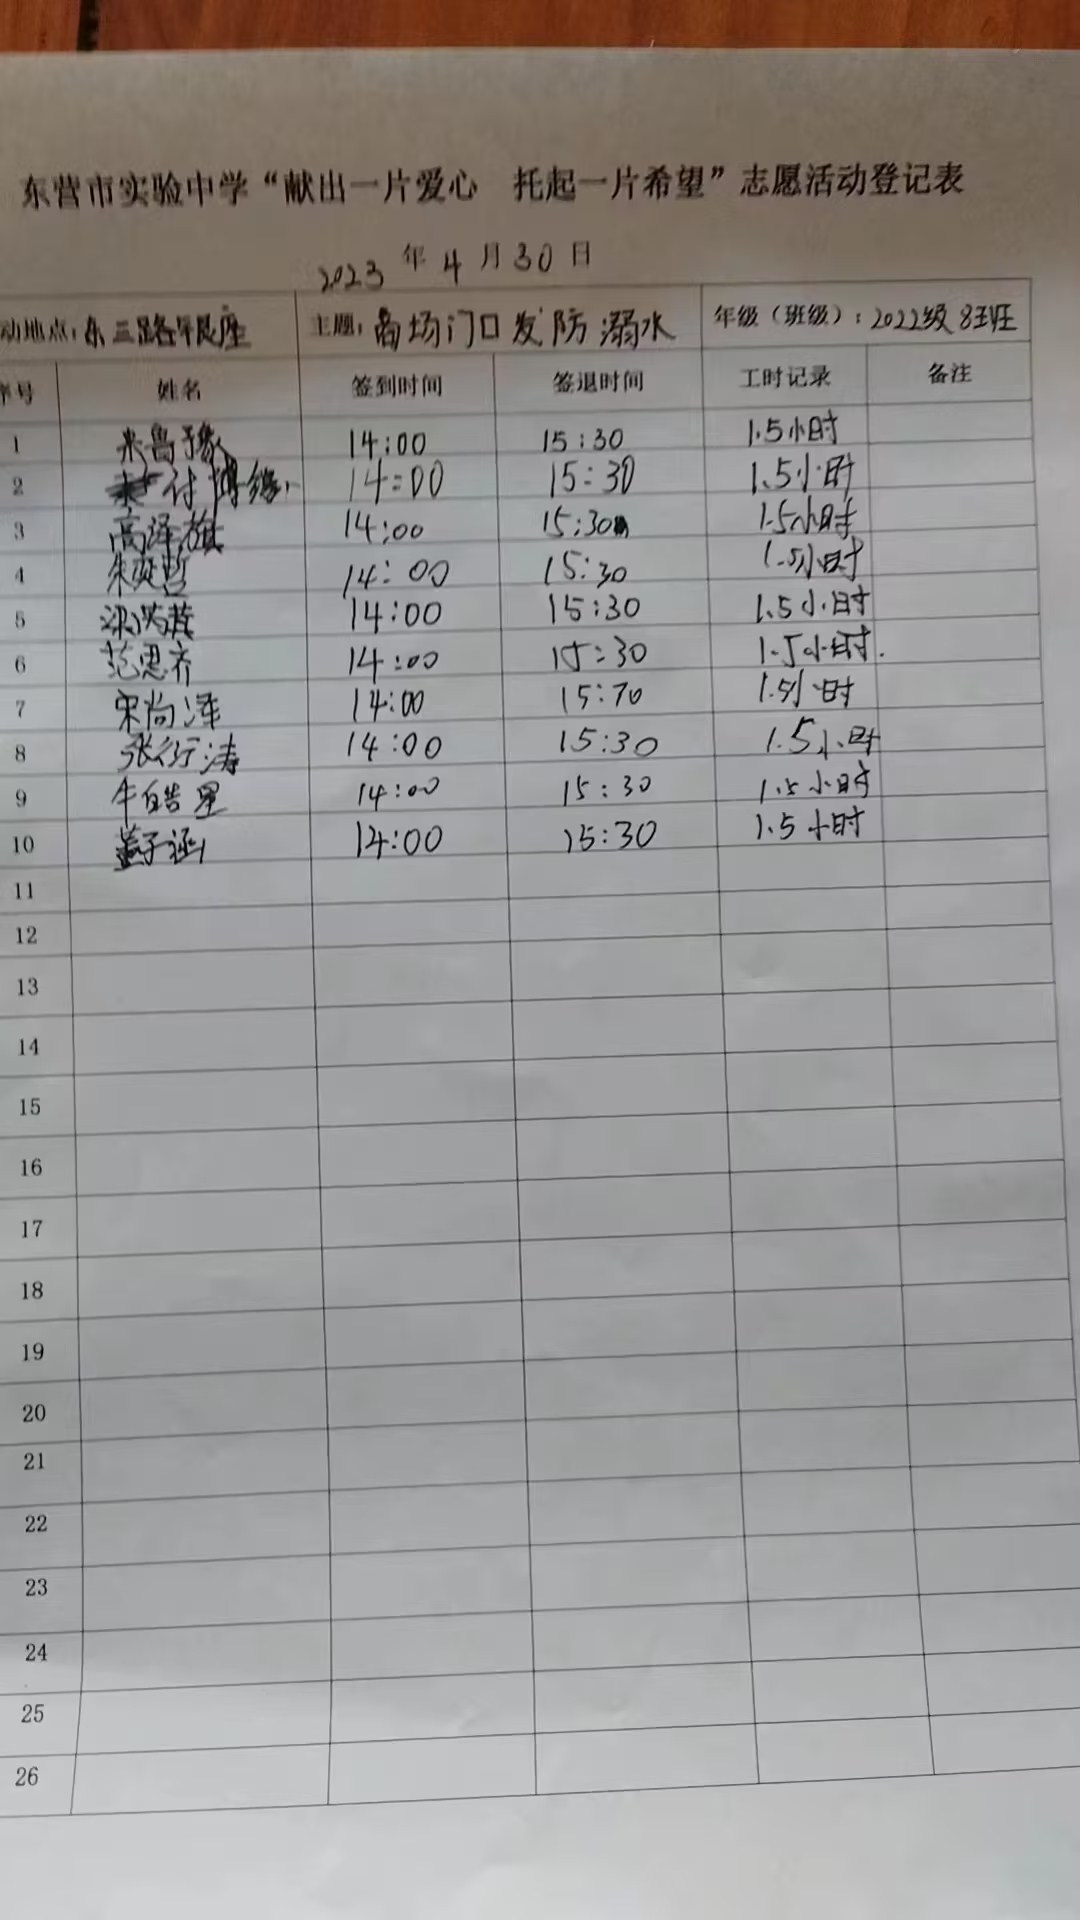 东营市实验中学“献出一片爱心 托起一片希望”志愿活动登记表
2023 年 4 月 30 日
动地点：东三路银座 主题：商场门口发防溺水 年级（班级）：2022级8班
序号 姓名 签到时间 签退时间 工时记录 备注
1 14:00 15:30 1.5小时
2 付 14:00 15:30 1.5小时
3 高泽旗 14:00 15:30 1.5小时
4 14:00 15:30 1.5小时
5 14:00 15:30 1.5小时
6 范思齐 14:00 15:30 1.5小时.
7 宋尚泽 14:00 15:70 1.5小时
8 张衍涛 14:00 15:30 1.5小时
9 牛皓星 14:00 15:30 1.5小时
10 盖子涵 14:00 15:30 1.5小时
11
12
13
14
15
16
17
18
19
20
21
22
23
24
25
26